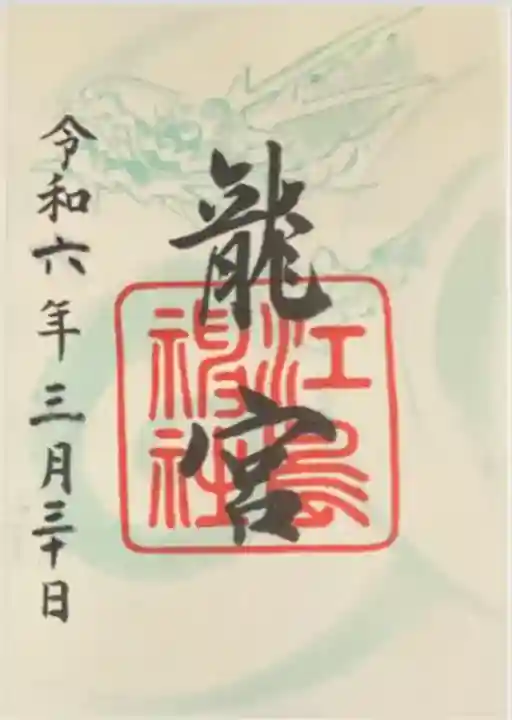 龍宮
江島
神社
令和六年三月三十日